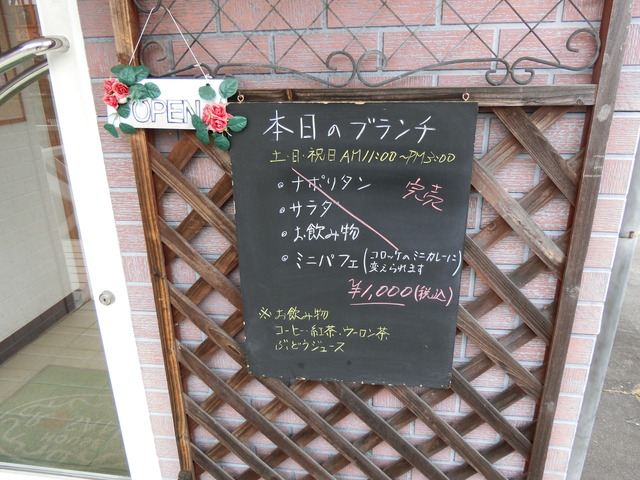 OPEN
本日のブランチ
土・日・祝日 AM11:00〜PM3:00
ナポリタン 完売
サラダ
お飲み物
ミニパフェ(コロッケのミニカレーに
変えられます)
¥1,000(税込)
※お飲み物
コーヒー・紅茶・ウーロン茶
ぶどうジュース